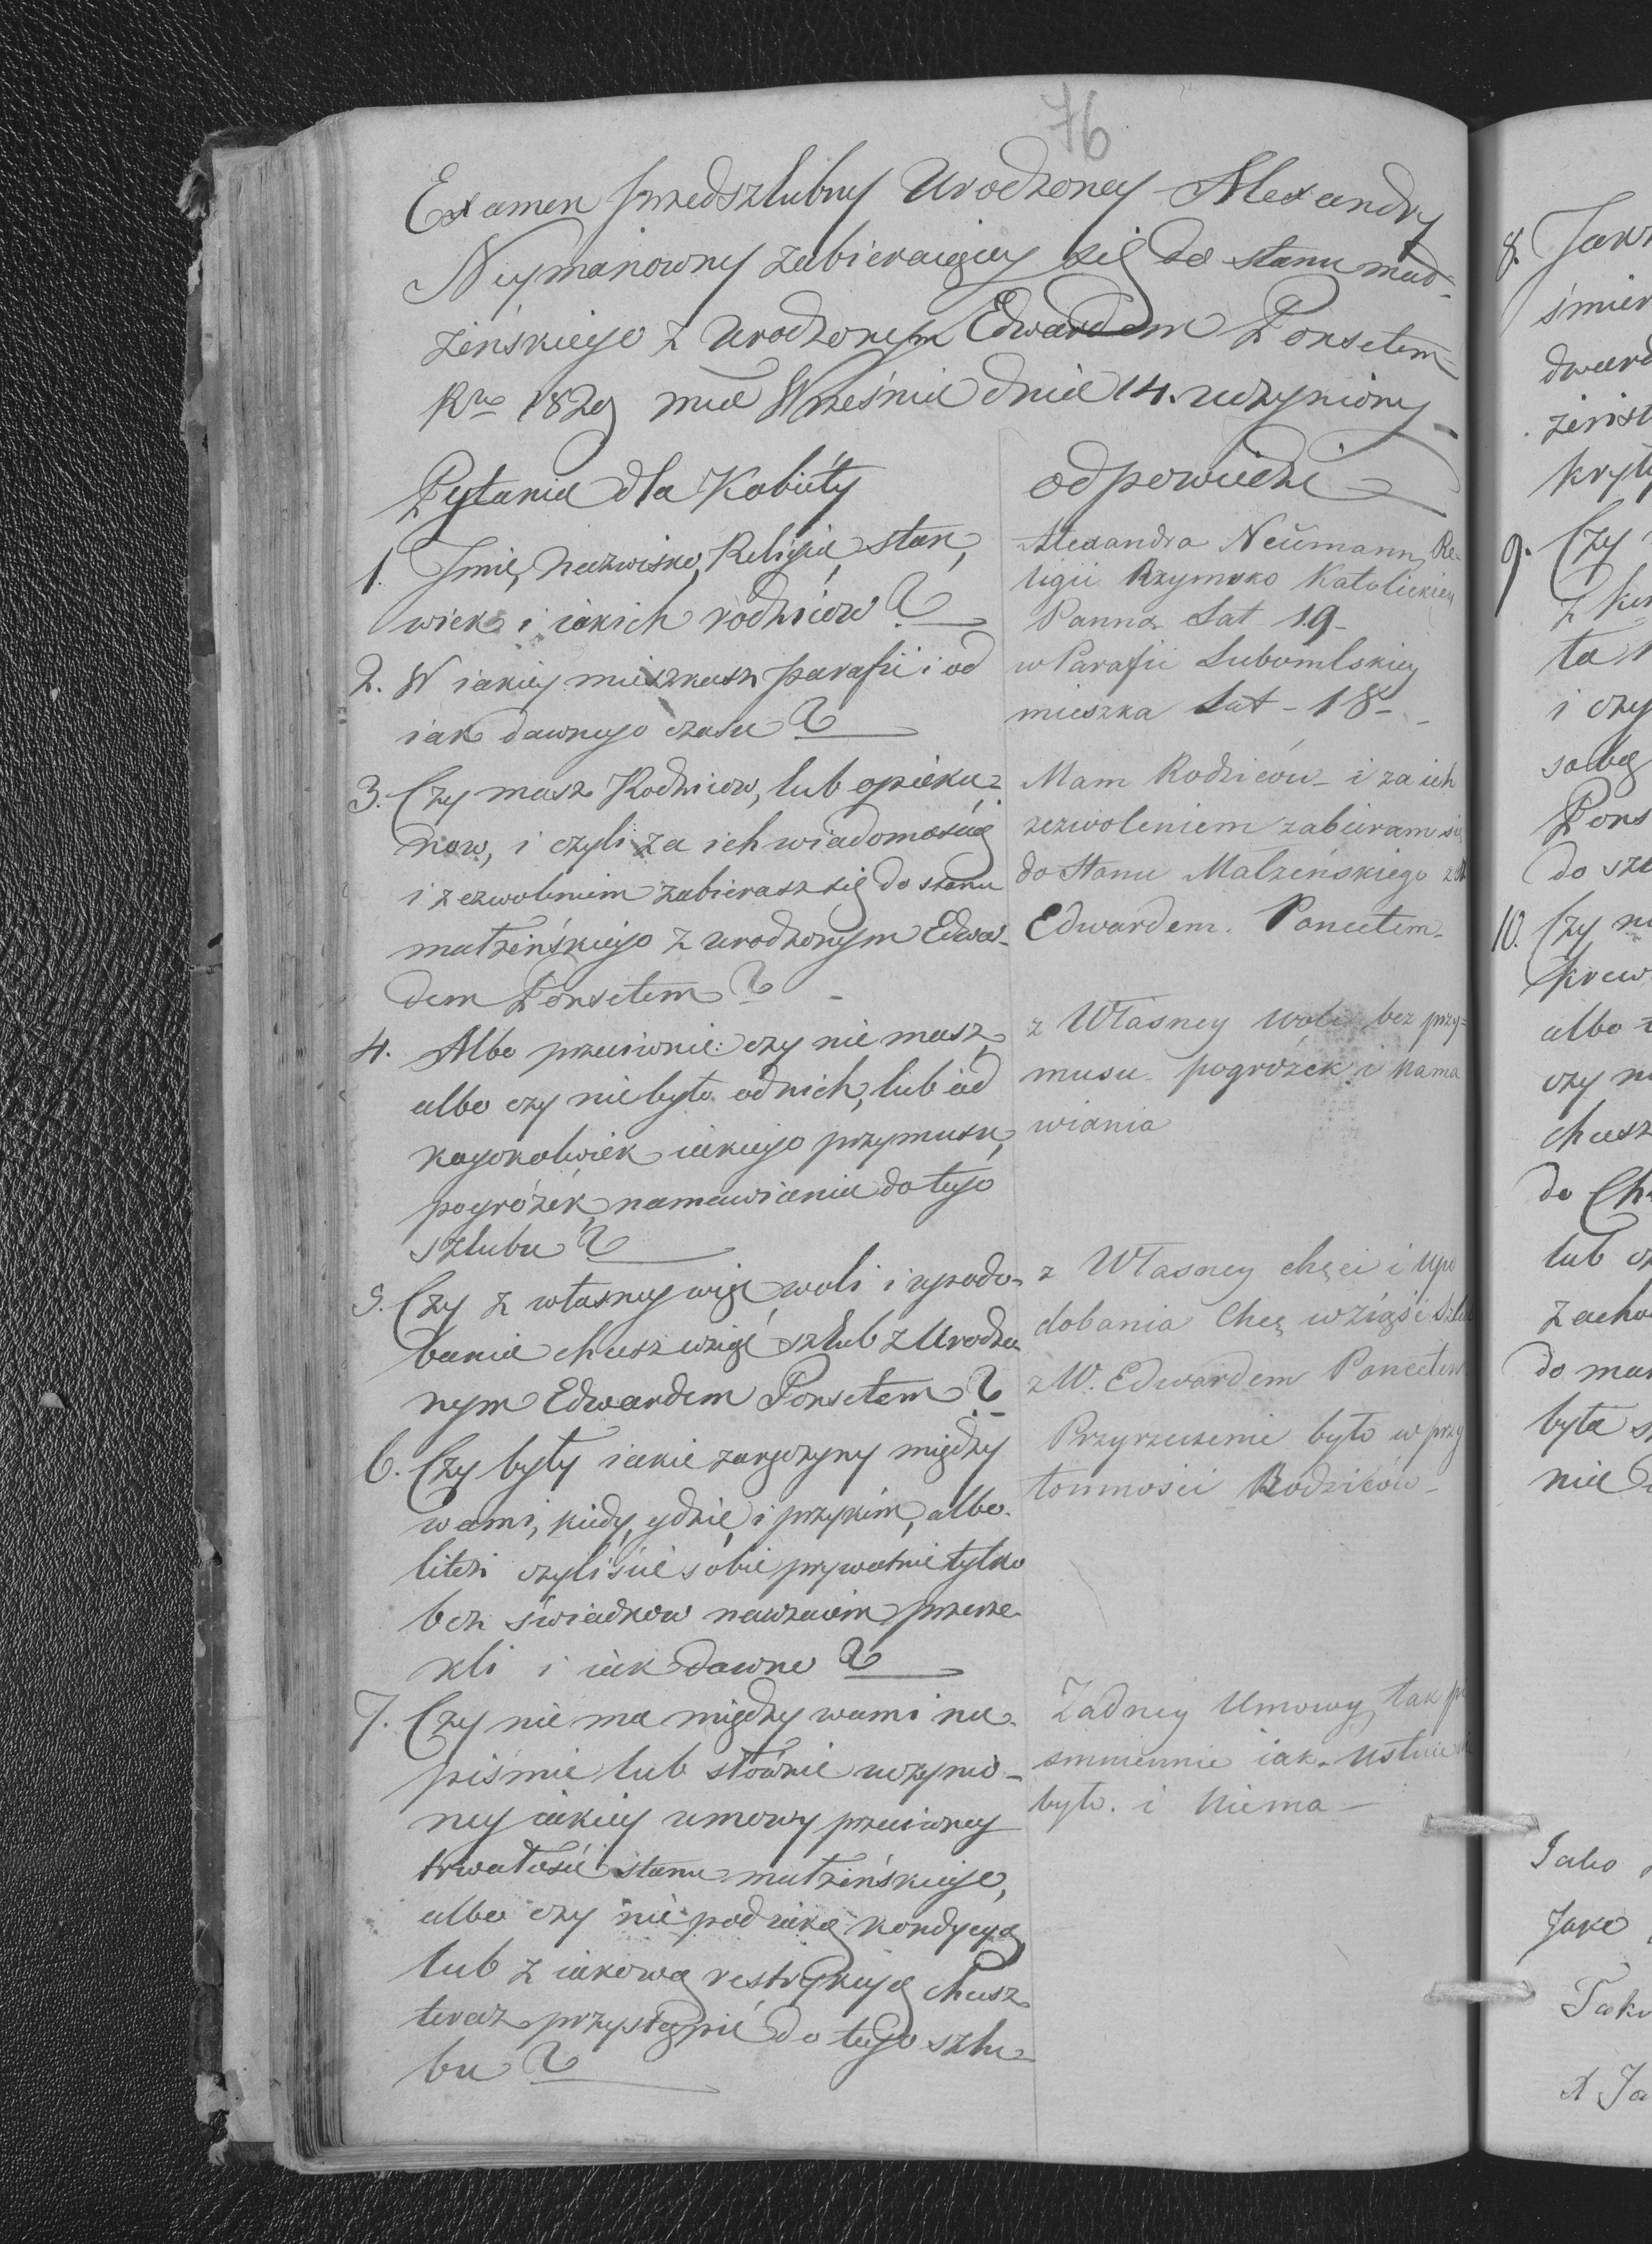 76
Examen przedszlubny Urodzoney Alexandry
Neymanowny zabieraiącey się do stanu mał-
żeńskiego z Urodzonym Edwardem Ponsetem
Rku 1829 mca Września dnia 14. uczyniony
Pytania dla Kobiéty
1. Jmie, Nazwisko, Religia, stan,
wiek i iakich rodziców?
2. W iakiey mieszkasz parafii i od
iak dawnego czasu?
3. Czy masz Rodziców, lub opieku-
now, i czyli za ich wiadomością
i zezwoleniem zabierasz się do stanu
małżeńskiego z urodzonym Edwar-
dem Ponsetem?
4. Albo przeciwnie: czy nie masz,
albo czy nie było od nich, lub od
kogokolwiek iakiego przymusu,
pogróżek, namawiania do tego
szlubu?
5. Czy z własney więc woli i upodo-
bania chcesz wziąć szlub z Urodzo-
nym Edwardem Ponsetem?
6. Czy były iakie zaręczyny między
wami, kiedy, gdzie, i przy kim, albo
liteż czyliście sobie prywatnie tylko
bez świadkow nawzaiem przyrze-
kli i iak dawno?
7. Czy nie ma między wami na
piśmie lub słównie uczynio-
ney iakiey umowy przeciwney
trwałości stanu małżeńskiego,
albo czy nie pod iaką kondycyą
lub z iakową restrykcyą chcesz
teraz przystąpić do tego szlu-
bu?
odpowiedzi
Alexandra Neümann, Re-
ligii Rzymsko Katolickiey
Panna Lat 19-
w Parafii Lubomlskiey
mieszka Lat - 18 -
Mam Rodziców - i za ich
zezwoleniem zabieram się
do Stanu Malżeńskiego z
Edwardem. Poncetem -
z Własney woli bez przy=
musu - pogróżek i nama
wiania
z Własney chęci i upo
dobania Chcę wziąść
z W. Edwardem Poncetem
Przyrzeczenie było w przy
tomności Rodziców -
Żadney Umowy tak
smiennie iak - ustnie
było. i Niema -
8. Jak
śmier
dward
żeńst
kryt
9. Czy
ta
i czy
sobą
Pons
do szl
10. Czy ni
krew
albo
czy ni
chcesz
do Ch
lub
Zacho
do mał
była
nia
Jako
Jako
Jako
X Ja